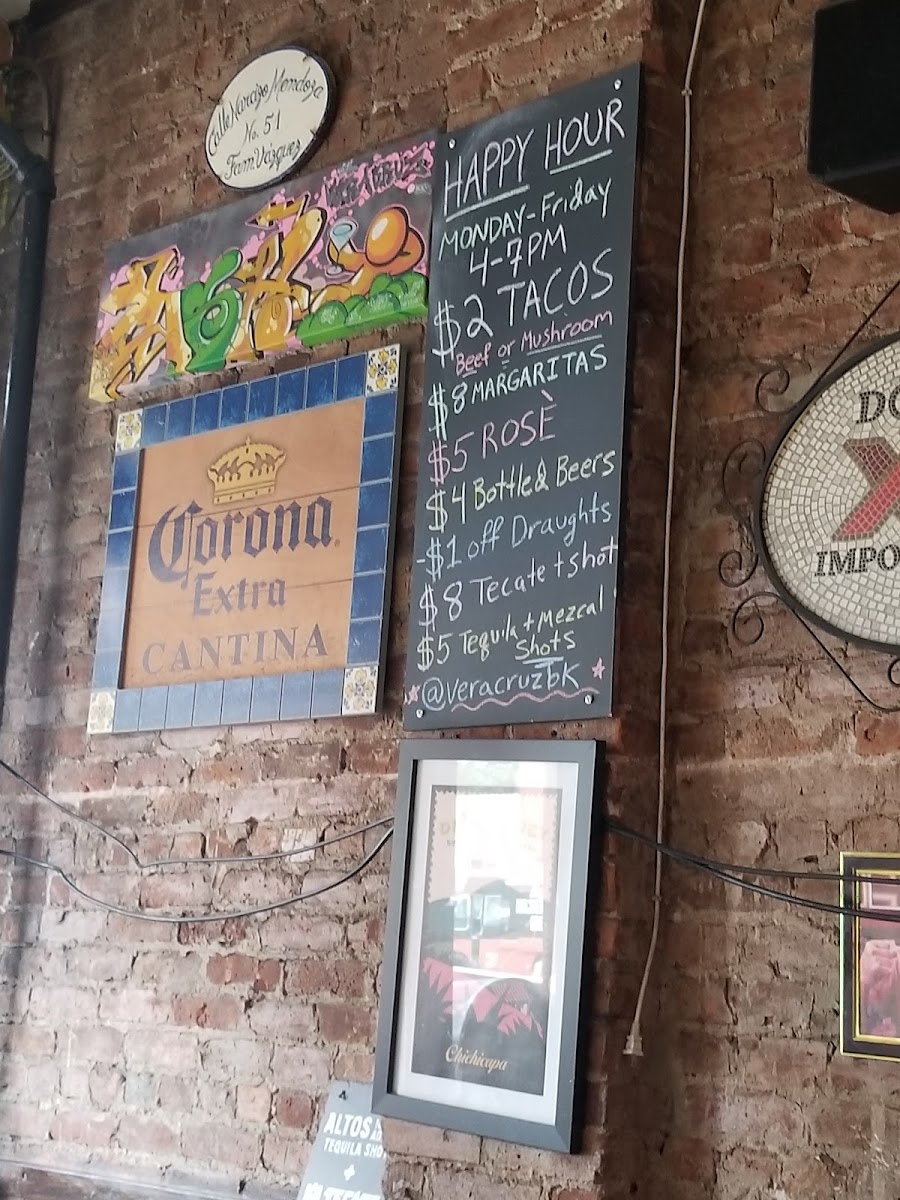 Calle Narciso Mendoza
No. 51
Fam. Vázquez
HAPPY HOUR
MONDAY-Friday
4-7PM
$2 TACOS
Beef or Mushroom
$8 MARGARITAS
$5 ROSÈ
$4 Bottled Beers
-$1 off Draughts
$8 Tecate + Shot
$5 Tequila + Mezcal
Shots
@veracruzbk
Corona
Extra
CANTINA
DO
X
IMPO
Chichicapa
ALTOS
TEQUILA SHO
+